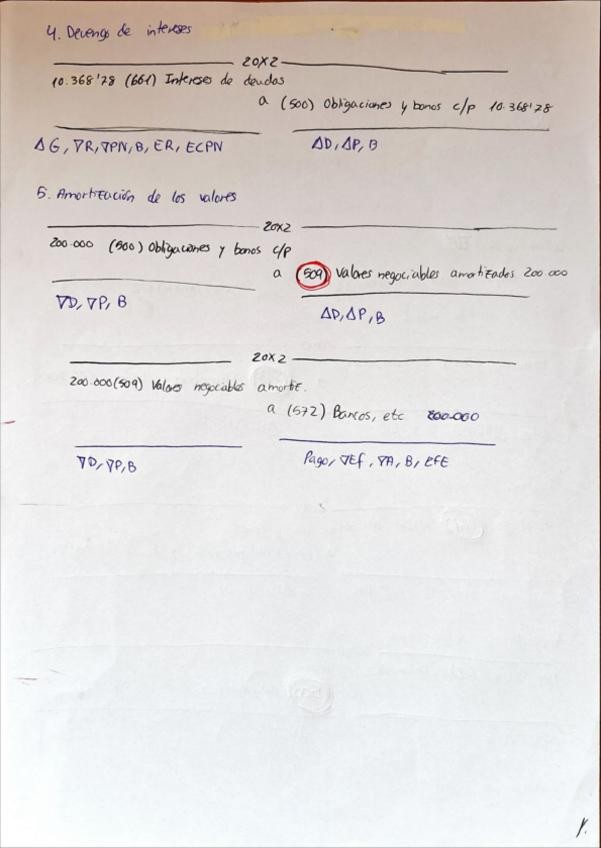 4. Devengo de intereses
20X2
10.368'78 (661) Intereses de deudas
a (500) Obligaciones y bonos c/p 10.368'78
ΔG, ∇R, ∇PN, B, ER, ECPN
ΔD, ΔP, B
5. Amortización de los valores
20X2
200.000 (500) Obligaciones y bonos c/p
a (509) Valores negociables amortizados 200.000
∇D, ∇P, B
ΔD, ΔP, B
20X2
200.000 (509) Valores negociables amortiz.
a (572) Bancos, etc 200.000
∇D, ∇P, B
Pago, ∇Ef, ∇A, B, EFE